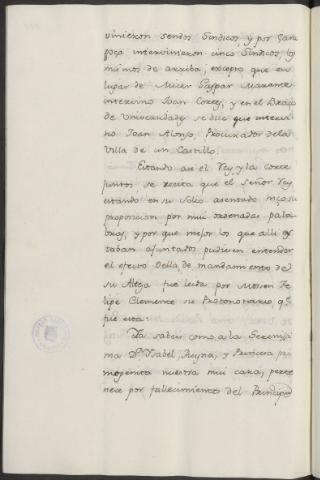 vinieron sendos Sindicos, y por Zara
goza intervinieron cinco Sindicos, los
mismos de arriba, excepto que en
lugar de Micer Gaspar Manente
intervino Joan Cortes, y en el Brazo
de Universidades se dice que intervi
no Joan Alonso, Procurador de la
Villa de un Castillo.
Estando asi el Rey, y la Corte
juntos, se recita que el Señor Rey
estando en su Solio asentado hizo su
proposicion por mui ordenadas pala
bras, y por que mejor los que alli es
taban ajuntados pudiesen entender
el efecto della de mandamiento de
su Alteza fue leida por Mosen Fe
lipe Clemente su Protonotario q.e
fue esta.
Ya sabeis como a la Serenisi
ma D.a Ysabel, Reyna, y Princesa pri
mogenita nuestra mui cara, perte
nece por fallecimiento del Principe